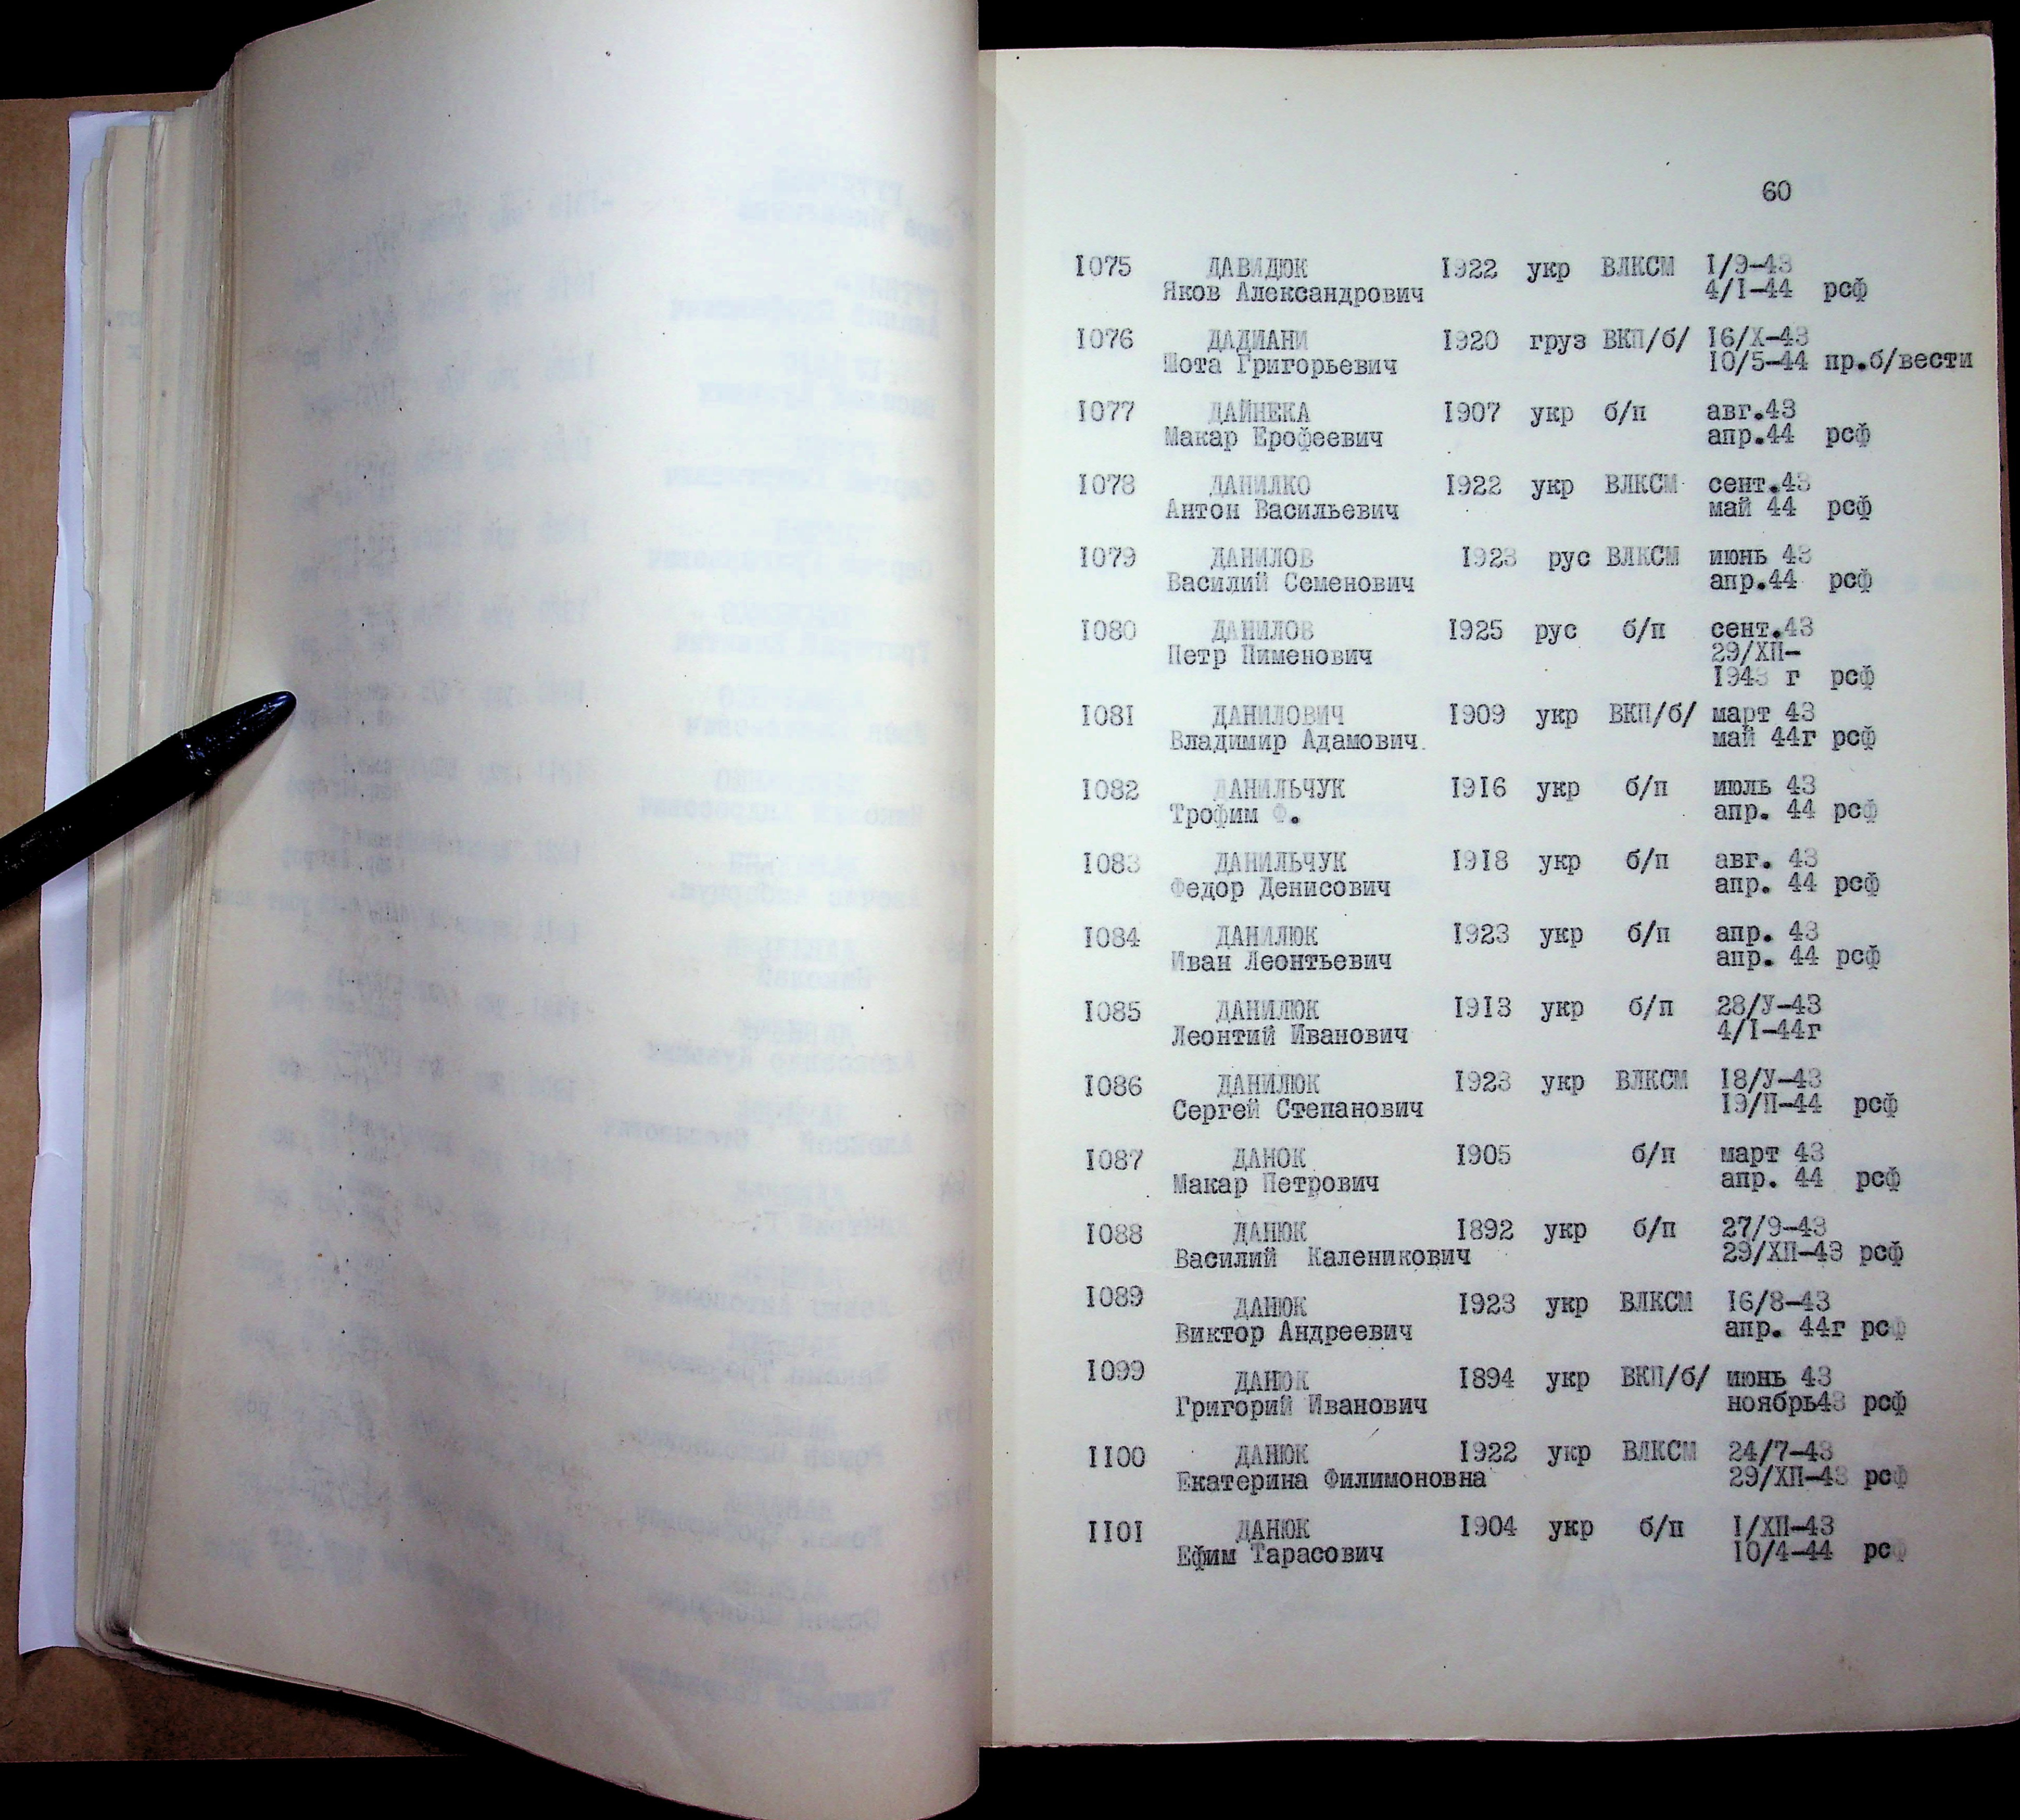 60
1075 ДАВИДЮК 1922 укр ВЛКСМ 1/9-43
Яков Александрович 4/1-44 рсф
1076 ДАДИАНИ 1920 груз ВКП/б/ 16/Х-43
Шота Григорьевич 10/5-44 пр.б/вести
1077 ДАЙНЕКА 1907 укр б/п авг.43
Макар Ерофеевич апр.44 рсф
1078 ДАНИЛКО 1922 укр ВЛКСМ сент.43
Антон Васильевич май 44 рсф
1079 ДАНИЛОВ 1923 рус ВЛКСМ июнь 43
Василий Семенович апр.44 рсф
1080 ДАНИЛОВ 1925 рус б/п сент.43
Петр Пименович 29/ХП-
1943 г рсф
1081 ДАНИЛОВИЧ 1909 укр ВКП/б/ март 43
Владимир Адамович. май 44г рсф
1082 ДАНИЛЬЧУК 1916 укр б/п июль 43
Трофим Ф. апр. 44 рсф
1083 ДАНИЛЬЧУК 1918 укр б/п авг. 43
Федор Денисович апр. 44 рсф
1084 ДАНИЛЮК 1923 укр б/п апр. 43
Иван Леонтьевич апр. 44 рсф
1085 ДАНИЛЮК 1913 укр б/п 28/У-43
Леонтий Иванович 4/1-44г
1086 ДАНИЛЮК 1923 укр ВЛКСМ 18/У-43
Сергей Степанович 19/П-44 рсф
1087 ДАНОК 1905 б/п март 43
Макар Петрович апр. 44 рсф
1088 ДАНЮК 1892 укр б/п 27/9-43
Василий Каленикович 29/ХП-43 рсф
1089 ДАНЮК 1923 укр ВЛКСМ 16/8-43
Виктор Андреевич апр. 44г рсф
1099 ДАНЮК 1894 укр ВКП/б/ июнь 43
Григорий Иванович ноябрь43 рсф
1100 ДАНЮК 1922 укр ВЛКСМ 24/7-43
Екатерина Филимоновна 29/ХП-43 рсф
1101 ДАНЮК 1904 укр б/п 1/ХП-43
Ефим Тарасович 10/4-44 рсф